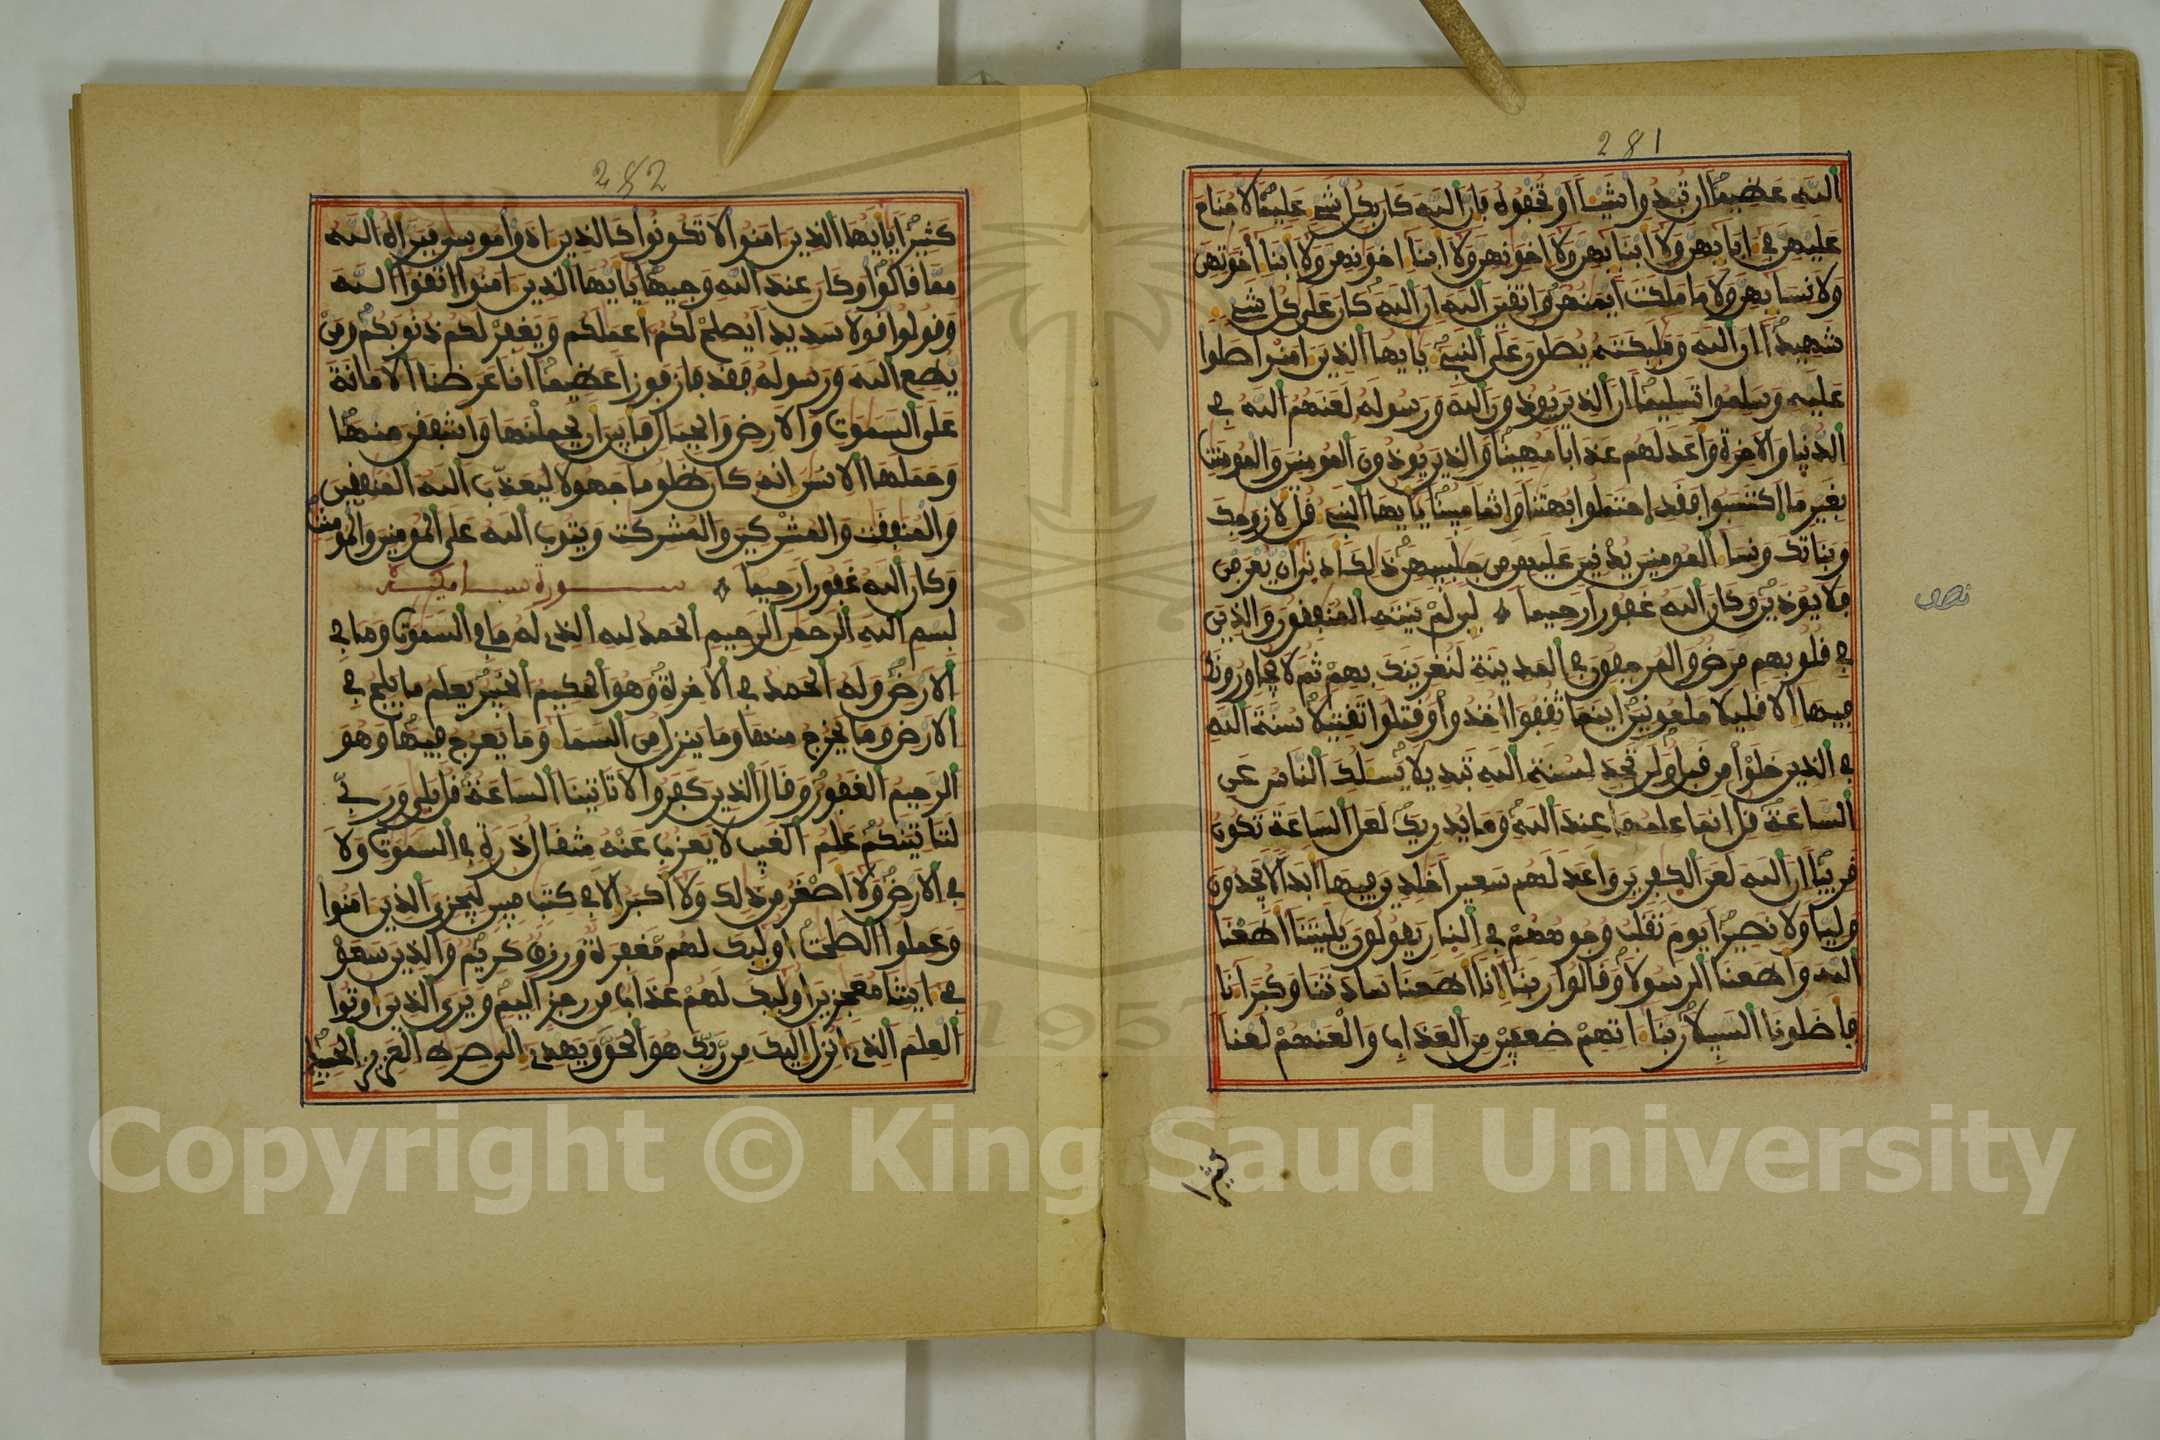 281
الله عظيما ان تبدوا شيا او تخفوه فان الله كان بكل شي عليما لا جناح
عليهن في ابايهن ولا ابنايهن ولا اخونهن ولا ابنا اخونهن ولا ابنا اخوتهن
ولا نسايهن ولا ما ملكت ايمنهن واتقين الله ان الله كان على كل شي
شهيدا ان الله ومليكته يصلون على النبي يايها الذين امنوا صلوا
عليه وسلموا تسليما ان الذين يوذون الله ورسوله لعنهم الله في
الدنيا والاخرة واعد لهم عذابا مهينا والذين يوذون المومنين والمومنت
بغير ما اكتسبوا فقد احتملوا بهتنا واثما مبينا يايها النبي قل لازوجك
وبناتك ونسا المومنين يدنين عليهن من جلبيبهن ذلك ادنى ان يعرفن
فلا يوذين وكان الله غفورا رحيما لين لم ينته المنفقون والذين
نصف
في قلوبهم مرض والمرجفون في المدينة لنغرينك بهم ثم لا يجاورونك
فيها الا قليلا ملعونين اينما ثقفوا اخذوا وقتلوا تقتيلا سنة الله
في الذين خلوا من قبل ولن تجد لسنة الله تبديلا يسلك الناس عن
الساعة قل انما علمها عند الله وما يدريك لعل الساعة تكون
قريبا ان الله لعن الكفرين واعد لهم سعيرا خلدين فيها ابدا لا يجدون
وليا ولا نصيرا يوم تقلب وجوههم في النار يقولون يليتنا اطعنا
الله واطعنا الرسولا وقالوا ربنا انا اطعنا سادتنا وكبرانا
فاضلونا السبيلا ربنا اتهم ضعفين من العذاب والعنهم لعنا
كثيرا
282
كثيرا يايها الذين امنوا لا تكونوا كالذين اذوا موسى فبراه الله
مما قالوا وكان عند الله وجيها يايها الذين امنوا اتقوا الله
وقولوا قولا سديدا يصلح لكم اعملكم ويغفر لكم ذنوبكم ومن
يطع الله ورسوله فقد فاز فوزا عظيما انا عرضنا الامانة
على السموت والارض والجبال فابين ان يحملنها واشفقن منها
وحملها الانسن انه كان ظلوما جهولا ليعذب الله المنفقين
والمنفقت والمشركين والمشركت ويتوب الله على المومنين والمومنت
وكان الله غفورا رحيما سورة سبا مكية
بسم الله الرحمن الرحيم الحمد لله الذي له ما في السموت وما في
الارض وله الحمد في الاخرة وهو الحكيم الخبير يعلم ما يلج في
الارض وما يخرج منها وما ينزل من السما وما يعرج فيها وهو
الرحيم الغفور وقال الذين كفروا لا تاتينا الساعة قل بلى وربي
لتاتينكم علم الغيب لا يعزب عنه مثقال ذرة في السموت ولا
في الارض ولا اصغر من ذلك ولا اكبر الا في كتب مبين ليجزي الذين امنوا
وعملوا الصلحت اوليك لهم مغفرة ورزق كريم والذين سعو
في ايتنا معجزين اوليك لهم عذاب من رجز اليم ويرى الذين اوتوا
العلم الذي انزل اليك من ربك هو الحق ويهدي الى صرط العزيز الحميد
1957
Copyright © King Saud University